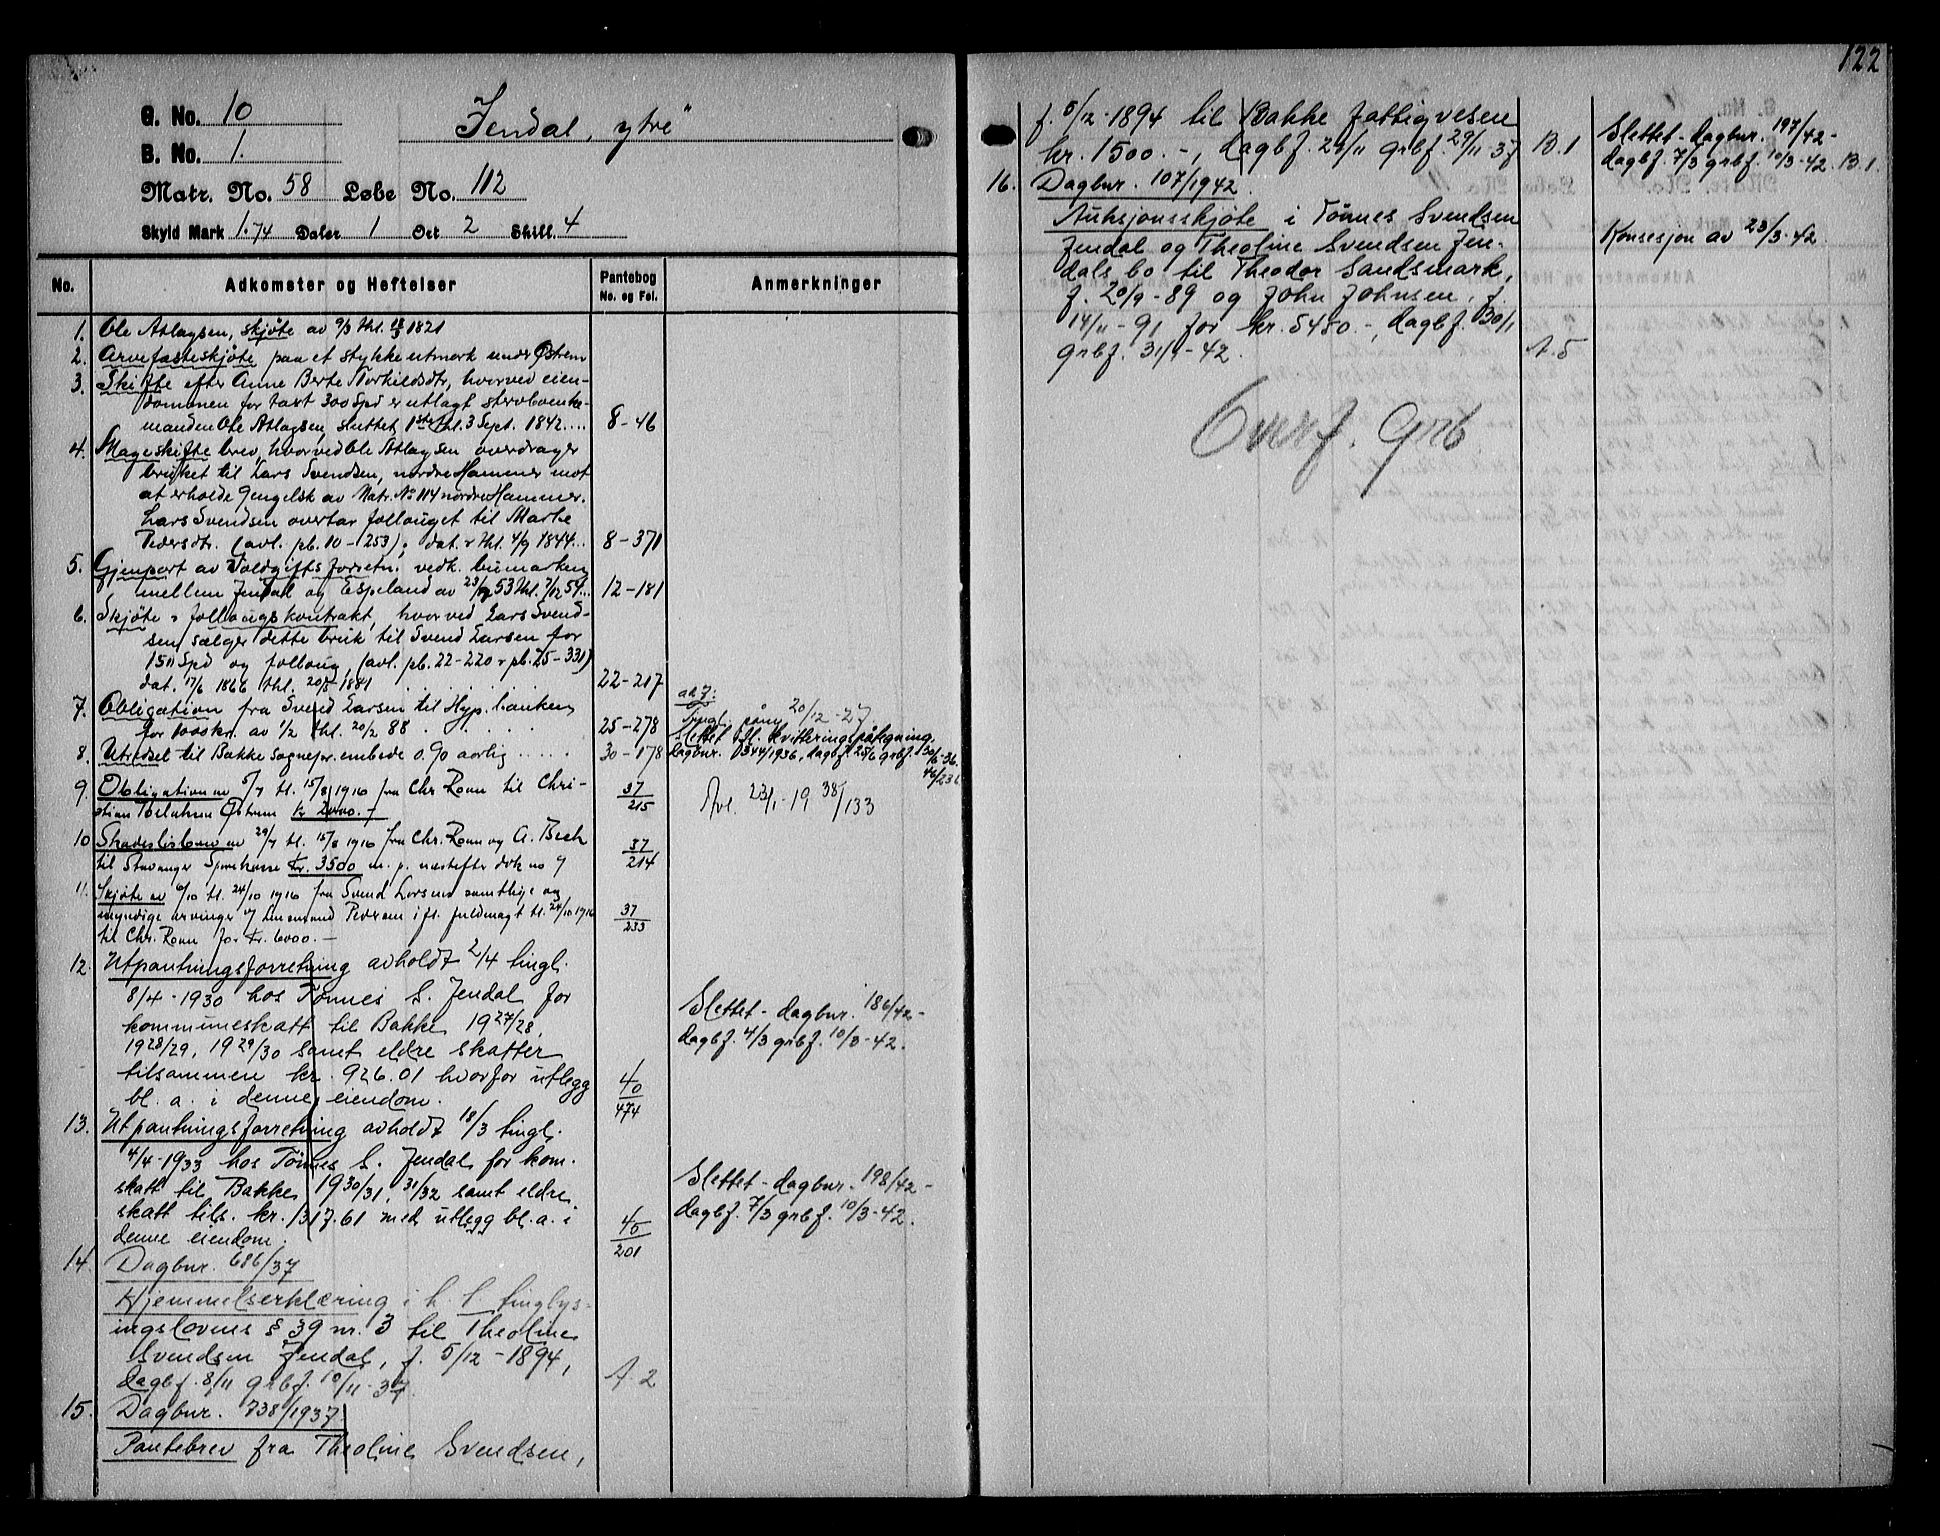 122
G. No. 10
B. No. 1.
Jendal, ytre"
Matr. No. 58 Løbe No. 112
Skyld Mark 1.74 Daler 1 Ort 2 Skill. 4
No. Adkomster og Heftelser Pantebog No. og Fol. Anmerkninger
1. Ole Atlagsen, skjøte av 9/3 thl. 1821
2. Arvefæsteskjøte paa et stykke utmark under Østrem
3. Skifte efter Anne Berte Torkildsdtr, hvorved eien-
dommen for taxt 300 Spd er utlagt stervboenke-
manden Ole Atlagsen, sluttet, thl. 3 Sept. 1842.... 8-46
4. Mageskifte brev, hvorved Ole Atlagsen overdrager
bruket til Lars Svendsen, nordre Hammer mot
at erholde Gengelsk av Matr. No 114 nordre Hammer.
Lars Svendsen overtar follouget til Marte
Pedersdtr. (avl. pb. 10-253), dat. & thl. 4/9 1844... 8-371
5. Gjenpart av Voldgiftsforretn. vedk. bumarken
mellem Jendal og Espeland av 53 thl. 54... 12-181
6. Skjøte & follougskontrakt, hvorved Lars Svend-
sen sælger dette bruk til Svend Larsen for
150 Spd og folloug, (avl. pb. 22-220 & pb. 25-331)
dat. 17/6 1866 thl. 20/5 1881 22-217
7. Obligation fra Svend Larsen til Hyp.banken
for 1000 kr. av 1/2 thl. 20/2 88 . . . . . 25-278
ad 7:
Tingl. paany 20/12-27
Slettet ifl. kvitteringspåtegning.
Dagbnr. 344/1936, dagbf. 25/6 grbf. 30/6-36.
46/236
8. Utredsel til Bakke Sognepr.embede 0.90 aarlig ..... 30-178
9. Obligation av 5/7 tl. 15/8 1916 fra Chr Roun til Chri-
stian Østrem kr 2000.- 37/215
Avl. 23/1-19 38/133
10 Skadesløsbrev av 29/7 tl. 15/8 1916 fra Chr. Roun og A. Bech
til Stavanger Sparekasse kr. 3500 m. p. næstefter dok no 9 37/214
11. Skjøte av 6/10 tl. 24/10 1916 fra Svend Larsens samtlige og
myndige arvinger v/ Pedersen ifl. fuldmagt tl. 24/10 1916
til Chr. Roun for kr. 6000.- 37/233
12. Utpantningsforretning avholdt 2/4 tingl.
8/4-1930 hos Tönnes S. Jendal for
kommuneskatt til Bakke 1927/28,
1928/29, 1929/30 samt eldre skatter
tilsammen kr. 926.01 hvorfor utlegg
bl. a. i denne eiendom. 40/474
Slettet - dagbnr. 186/42 -
dagbf. 4/3 grbf. 10/3-42.
13. Utpantningsforretning avholdt 18/3 tingl.
4/4-1933 hos Tönnes S. Jendal for kom.
skatt til Bakke 1930/31, 31/32 samt eldre
skatt tils. kr. 1317.61 med utlegg bl. a. i
denne eiendom. 45/201
Slettet - dagbnr. 198/42 -
dagbf. 7/3 grbf. 10/3-42.
14. Dagbnr. 686/37
Hjemmelserklæring i h. t. tinglys-
ingslovens § 39 nr. 3 til Theoline
Svendsen Jendal, f. 5/12-1894,
dagbf. 8/11 grbf. 10/11-37. A 2
15. Dagbnr. 738/1937
Pantebrev fra Theoline Svendsen,
f. 5/12-1894 til Bakke fattigvesen
kr. 1500.-, dagbf. 29/11 grbf. 29/11-37 B.1
Slettet - dagbnr. 197/42 -
dagbf. 7/3 grbf. 10/3-42. B.1.
16. Dagbnr. 107/1942.
Auksjonsskjøte i Tönnes Svendsen
Jendal og Theoline Svendsen Jen-
dals bo til Theodor Sandsmark,
f. 20/9-89 og John Johnsen, f.
14/11-91 for kr. 5450.-, dagbf. 30/1
grbf. 31/1-42. A.5
Konsesjon av 23/3-42.
Overf. Grb